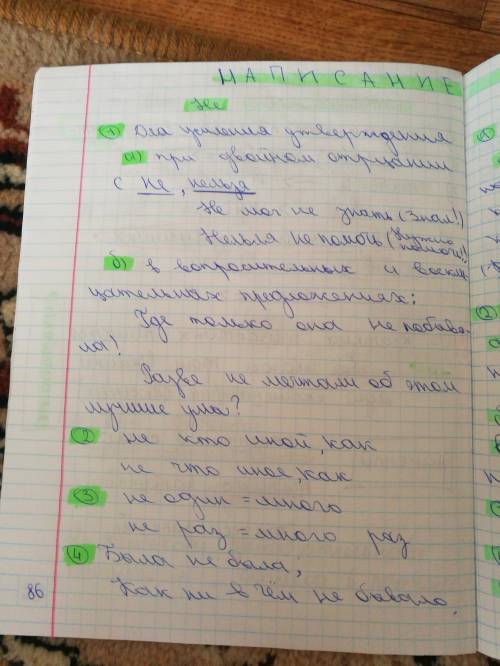 НАПИСАНИЕ
Не
① Для усиления утверждения
а) при двойном отрицании
с не, нельзя
Не мог не знать (знал!)
Нельзя не помочь (Нужно помочь!)
б) в вопросительных и воскли
цательных предложениях:
Где только она не побыва-
ла!
Разве не мечтали об этом
лучшие умы?
② не кто иной, как
не что иное, как
③ не один = много
не раз = много раз
④ Была не была;
Как ни в чём не бывало.
86